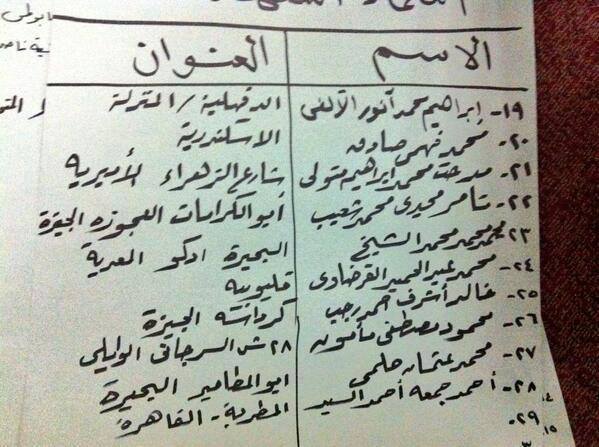 الاسم العنوان
١٩- ابراهيم محمد أنور الألفى الدقهلية / المنزلة
٢٠- محمد فهمى صادق الاسكندرية
٢١- مدحت محمد ابراهيم متولى شارع الزهراء الأميرية
٢٢- تامر مجدى محمد شعيب أبو الكرامات العجوزه الجيزة
٢٣- محمد محمد محمد الشيخ البحيرة ادكو المعدية
٢٤- محمد عبد الحميد القرضاوى قليوبيه
٢٥- خالد أشرف احمد رجب كرداسه الجيزة
٢٦- محمود مصطفى مأمون ٢٨ ش السرجانى الوايلى
٢٧- محمد عثمان حلمى ابو المطامير البحيرة
٢٨- أحمد جمعه أحمد السيد المطرية - القاهرة
٢٩-